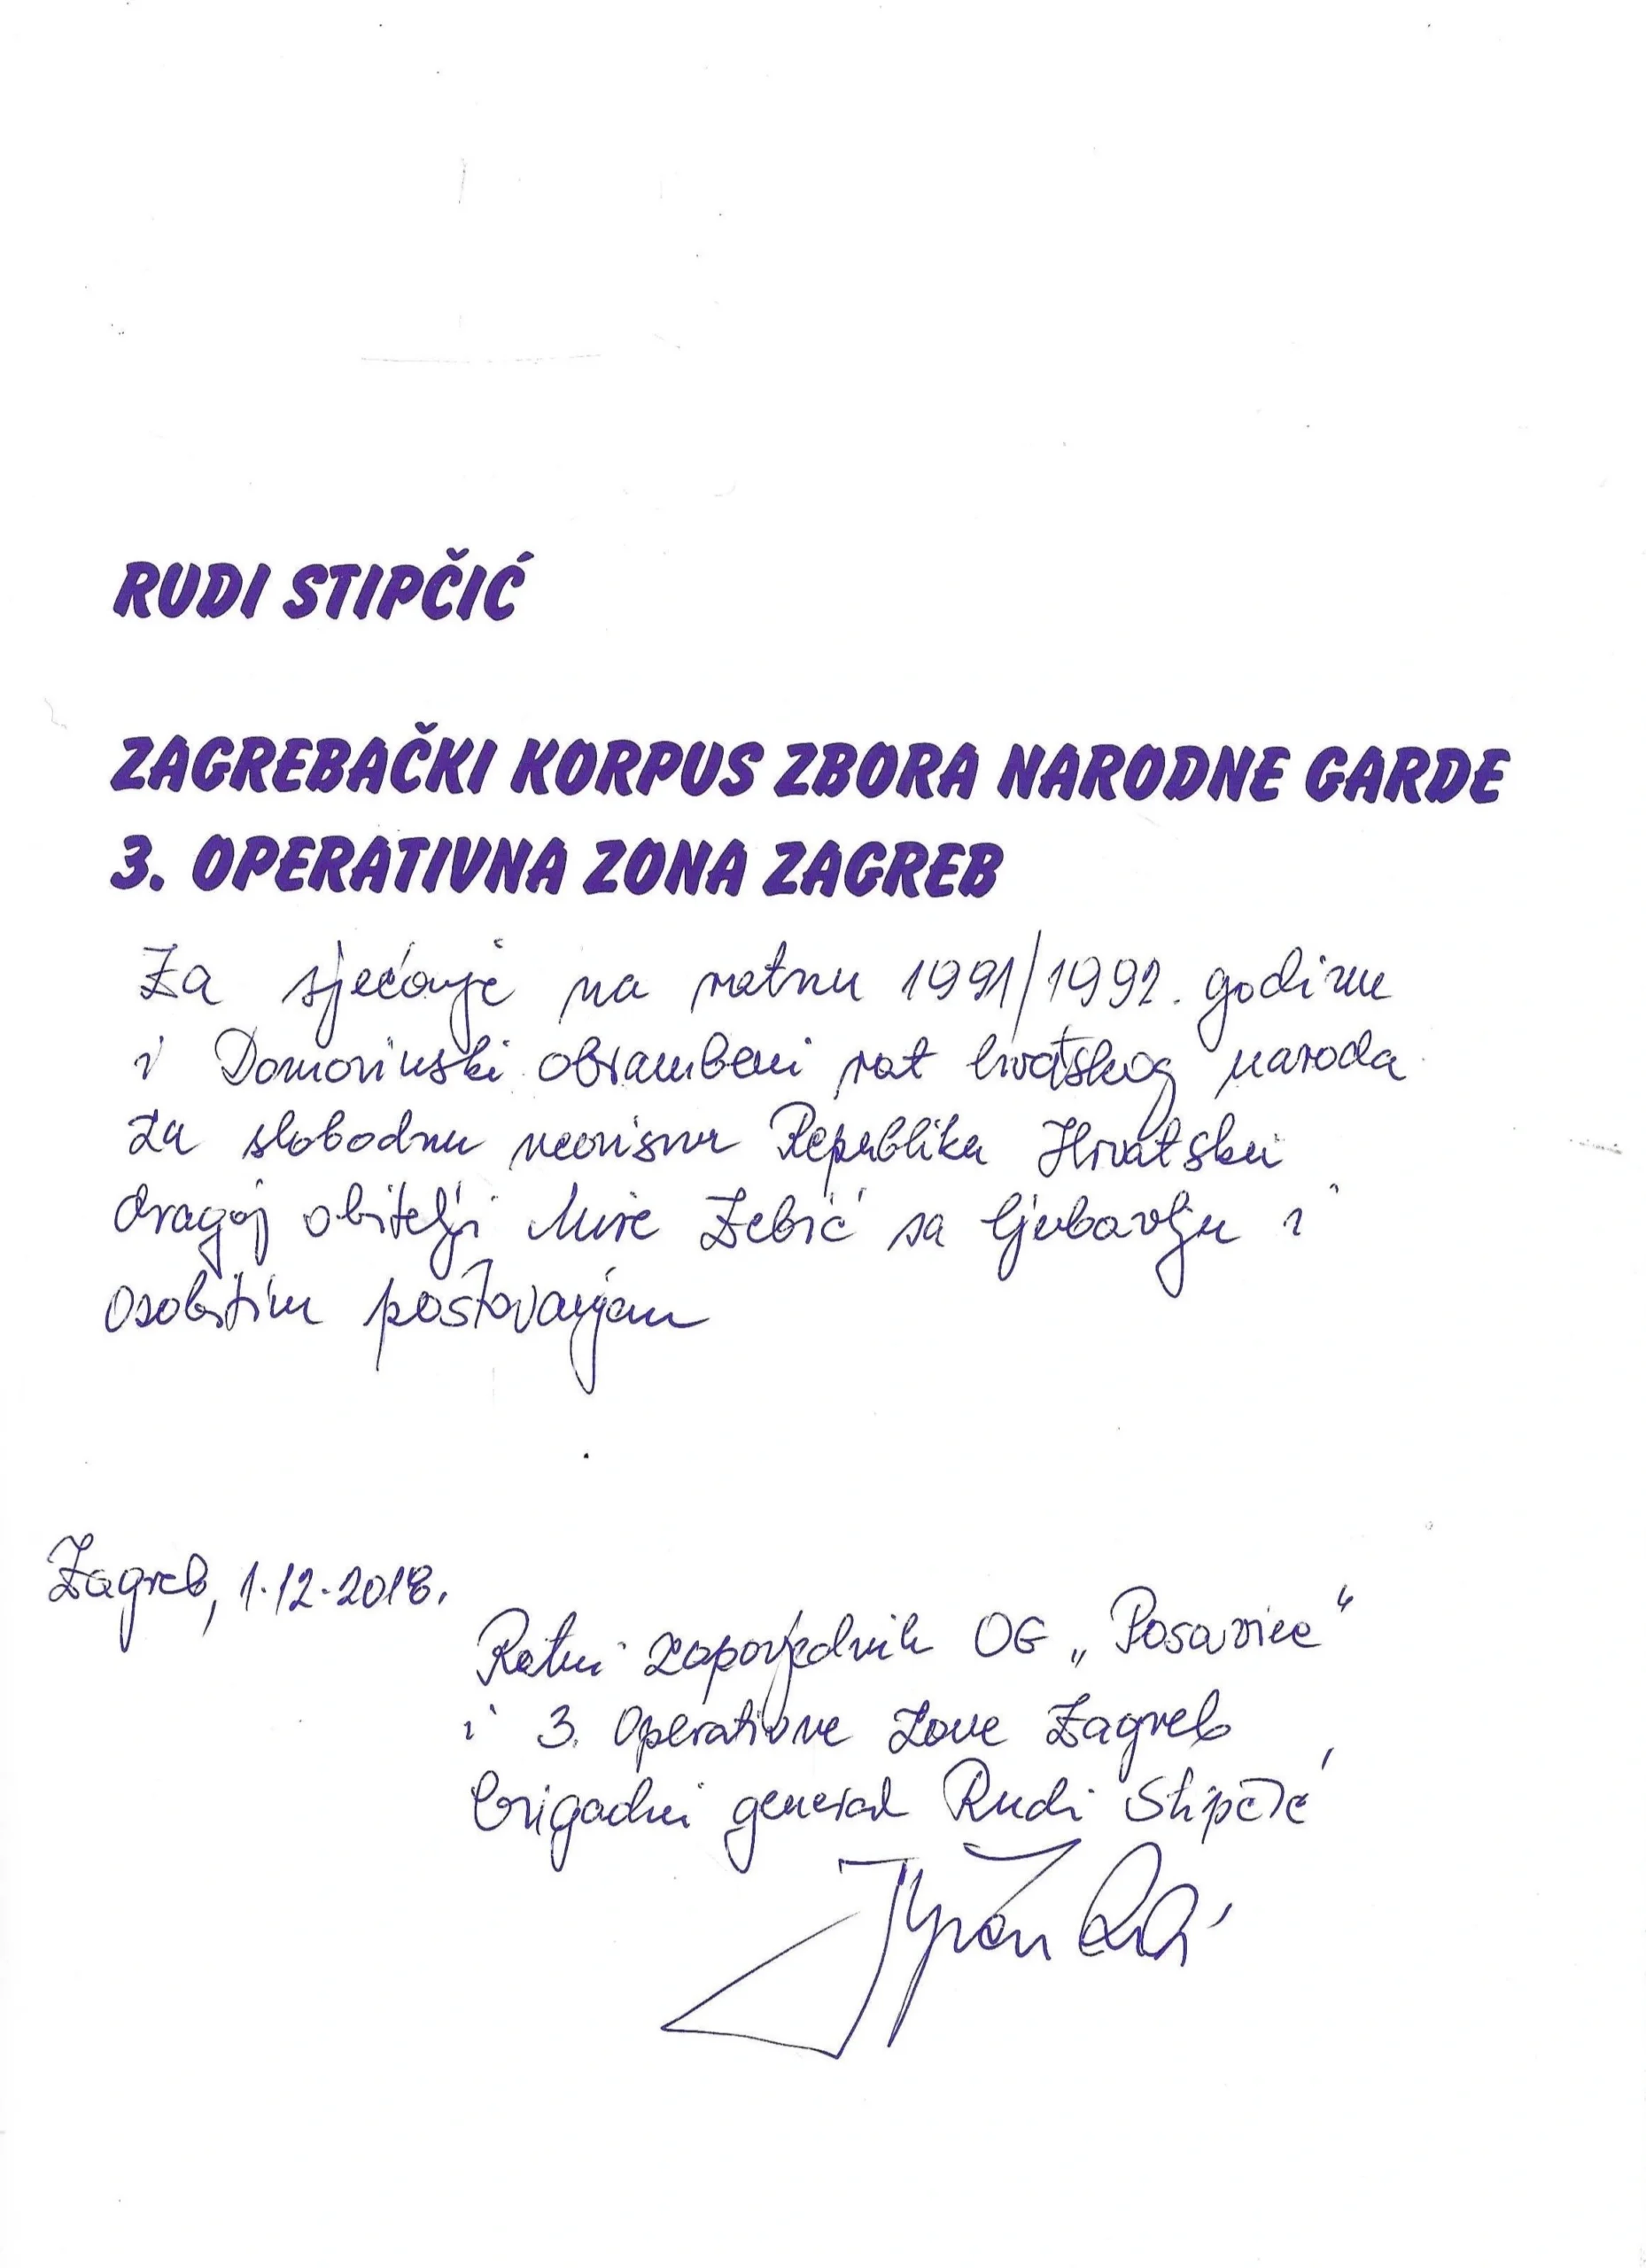 RUDI STIPČIĆ
ZAGREBAČKI KORPUS ZBORA NARODNE GARDE
3. OPERATIVNA ZONA ZAGREB
Za sjećanje na ratnu 1991/1992. godinu
i Domovinski obrambeni rat hrvatskog naroda
za slobodnu neovisnu Republiku Hrvatsku
dragoj obitelji Mire Zebić sa ljubavlju i
osobitim poštovanjem
Zagreb, 1.12.2018.
Ratni zapovjednik OG „Posavina“
i 3. Operativne Zone Zagreb
brigadni general Rudi Stipčić